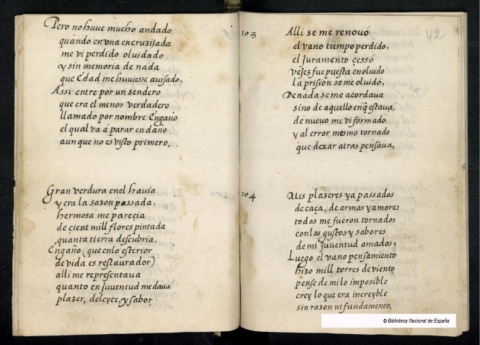 Pero no huve mucho andado
quando en vna encruzijada
me vi perdido olvidado
y sin memoria de nada
que Edad me huuiesse auisado.
Assi entre por un sendero
que era el menos verdadero
llamado por nombre Engaño
el qual va à parar en daño
aunque no es visto primero,
Gran verdura en el hauia
y era la sazon passada,
hermosa me parecia
de cient mill flores pintada
quanta tierra descubria.
Engaño (que en lo exterior
de vida es restaurador)
alli me representaua
quanto en juuentud me daua
plazer, deleyte, y sabor
103
92
Alli se me renouò
el vano tiempo perdido,
el juramento cessò
vejes fue puesta en oluido
la prisión se me oluidò.
De nada se me acordaua
sino de aquello en q̃ estaua,
de nuevo me vi formado
y al error mesmo tornado
que dexar atras pensaua,
104
Mis plazeres ya passados
de caça, de armas y amores
todos me fueron tornados
con los gustos y sabores
de mi juuentud amados,
Luego el vano pensamiento
hizo mill torres de viento
pense de milo imposible
crey lo que era increyble
sin razon ni fundamento,
© Biblioteca Nacional de España